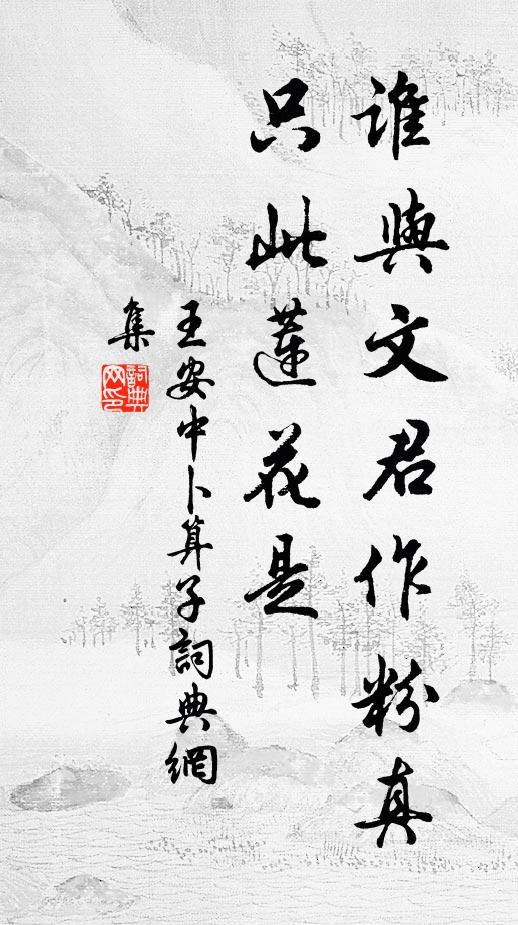 誰與文君作粉真
只此蓮花是
王安中卜算子詞典網
集
詞典網印